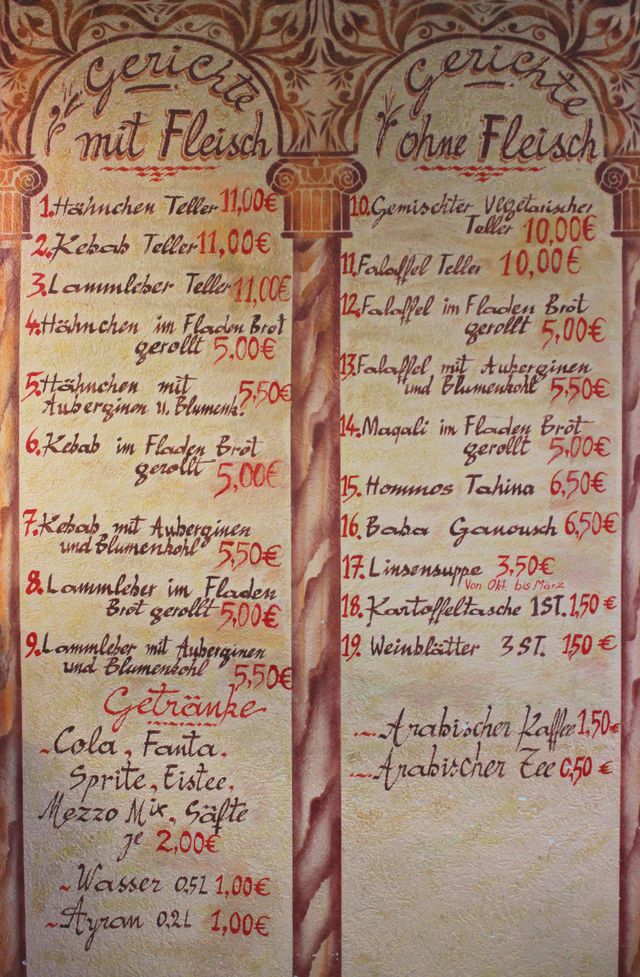 Gerichte
mit Fleisch
1. Hähnchen Teller 11,00€
2. Kebab Teller 11,00€
3. Lammleber Teller 11,00€
4. Hähnchen im Fladen Brot
gerollt 5,00€
5. Hähnchen mit 5,50€
Auberginen u. Blumenk.
6. Kebab im Fladen Brot
gerollt 5,00€
7. Kebab mit Auberginen
und Blumenkohl 5,50€
8. Lammleber im Fladen
Brot gerollt 5,00€
9. Lammleber mit Auberginen
und Blumenkohl 5,50€
Getränke
~Cola, Fanta,
Sprite, Eistee,
Mezzo Mix, Säfte
je 2,00€
~Wasser 0,5L 1,00€
~Ayran 0,2L 1,00€
Gerichte
ohne Fleisch
10. Gemischter Vegetarischer
Teller 10,00€
11. Falaffel Teller 10,00€
12. Falaffel im Fladen Brot
gerollt 5,00€
13. Falaffel mit Auberginen
und Blumenkohl 5,50€
14. Maqali im Fladen Brot
gerollt 5,00€
15. Hommos Tahina 6,50€
16. Baba Ganousch 6,50€
17. Linsensuppe 3,50€
Von Okt. bis März
18. Kartoffeltasche 1ST. 1,50€
19. Weinblätter 3 ST. 1,50€
~Arabischer Kaffee 1,50€
~Arabischer Tee 0,50€